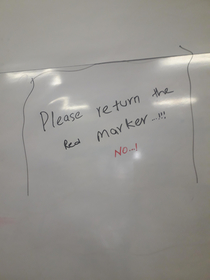 Please return the
Red marker...!!!
NO..!